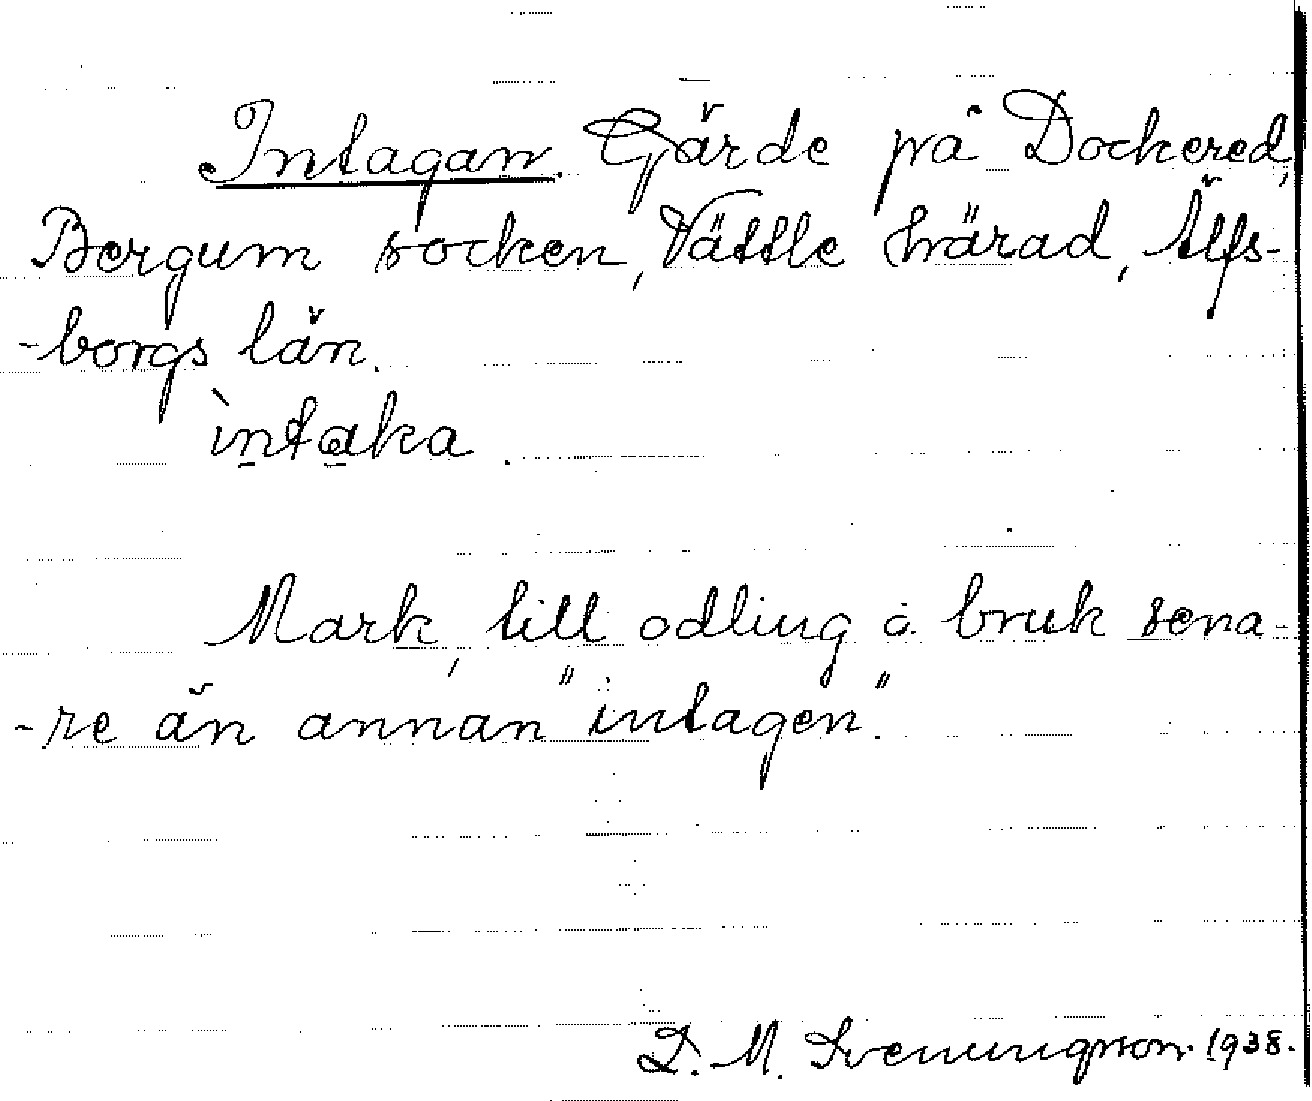 Intagan. Gärde på Dockered,
Bergum socken, Vättle härad, Älfs-
-borgs län.
ìntaka.
Mark, till odling o. bruk sena-
-re än annan "intagen".
D. M. Sveningsson. 1938.